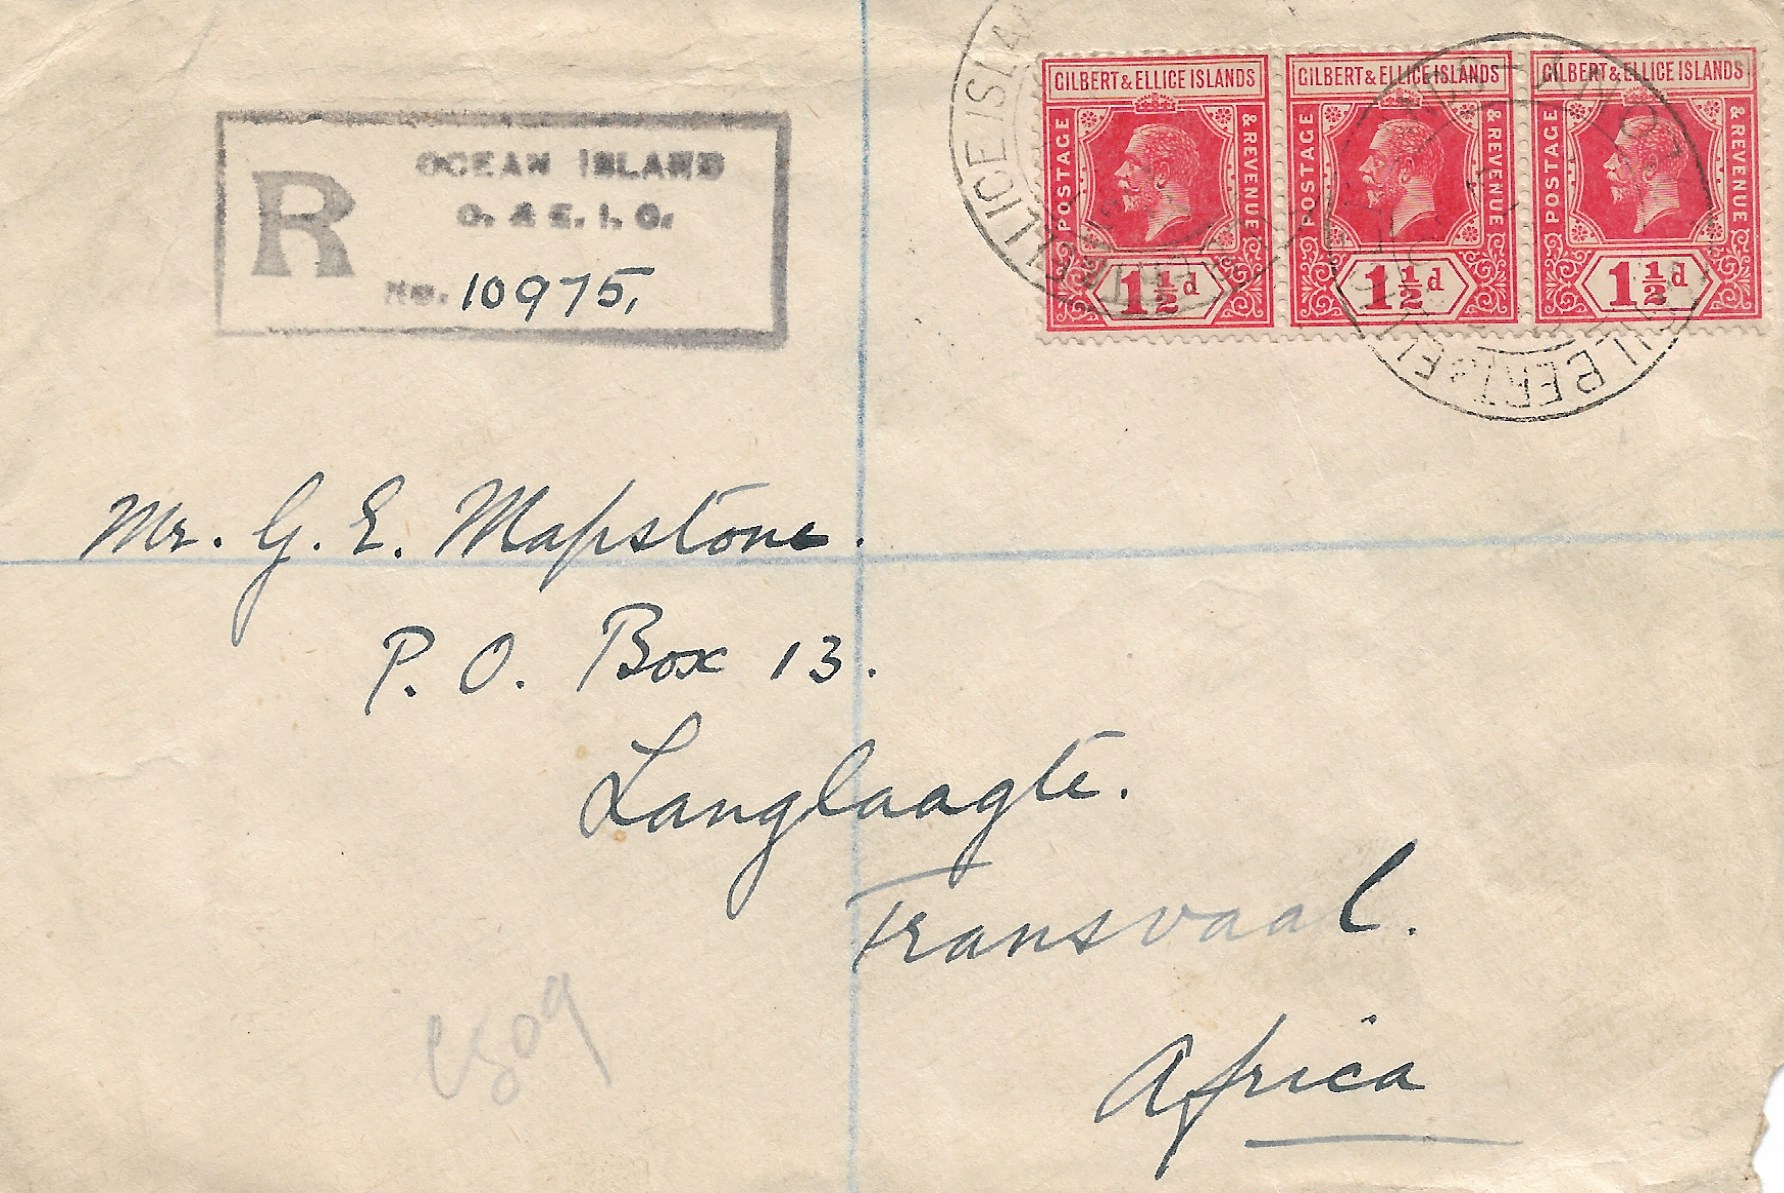 OCEAN ISLAND
G. & E. I. C.
R
No. 10975,
GILBERT & ELLICE ISLANDS
POSTAGE & REVENUE
1½d
GILBERT & ELLICE ISLANDS
POSTAGE & REVENUE
1½d
GILBERT & ELLICE ISLANDS
POSTAGE & REVENUE
1½d
Mr. G. E. Mapstone.
P. O. Box 13.
Langlaagte.
Transvaal.
Africa